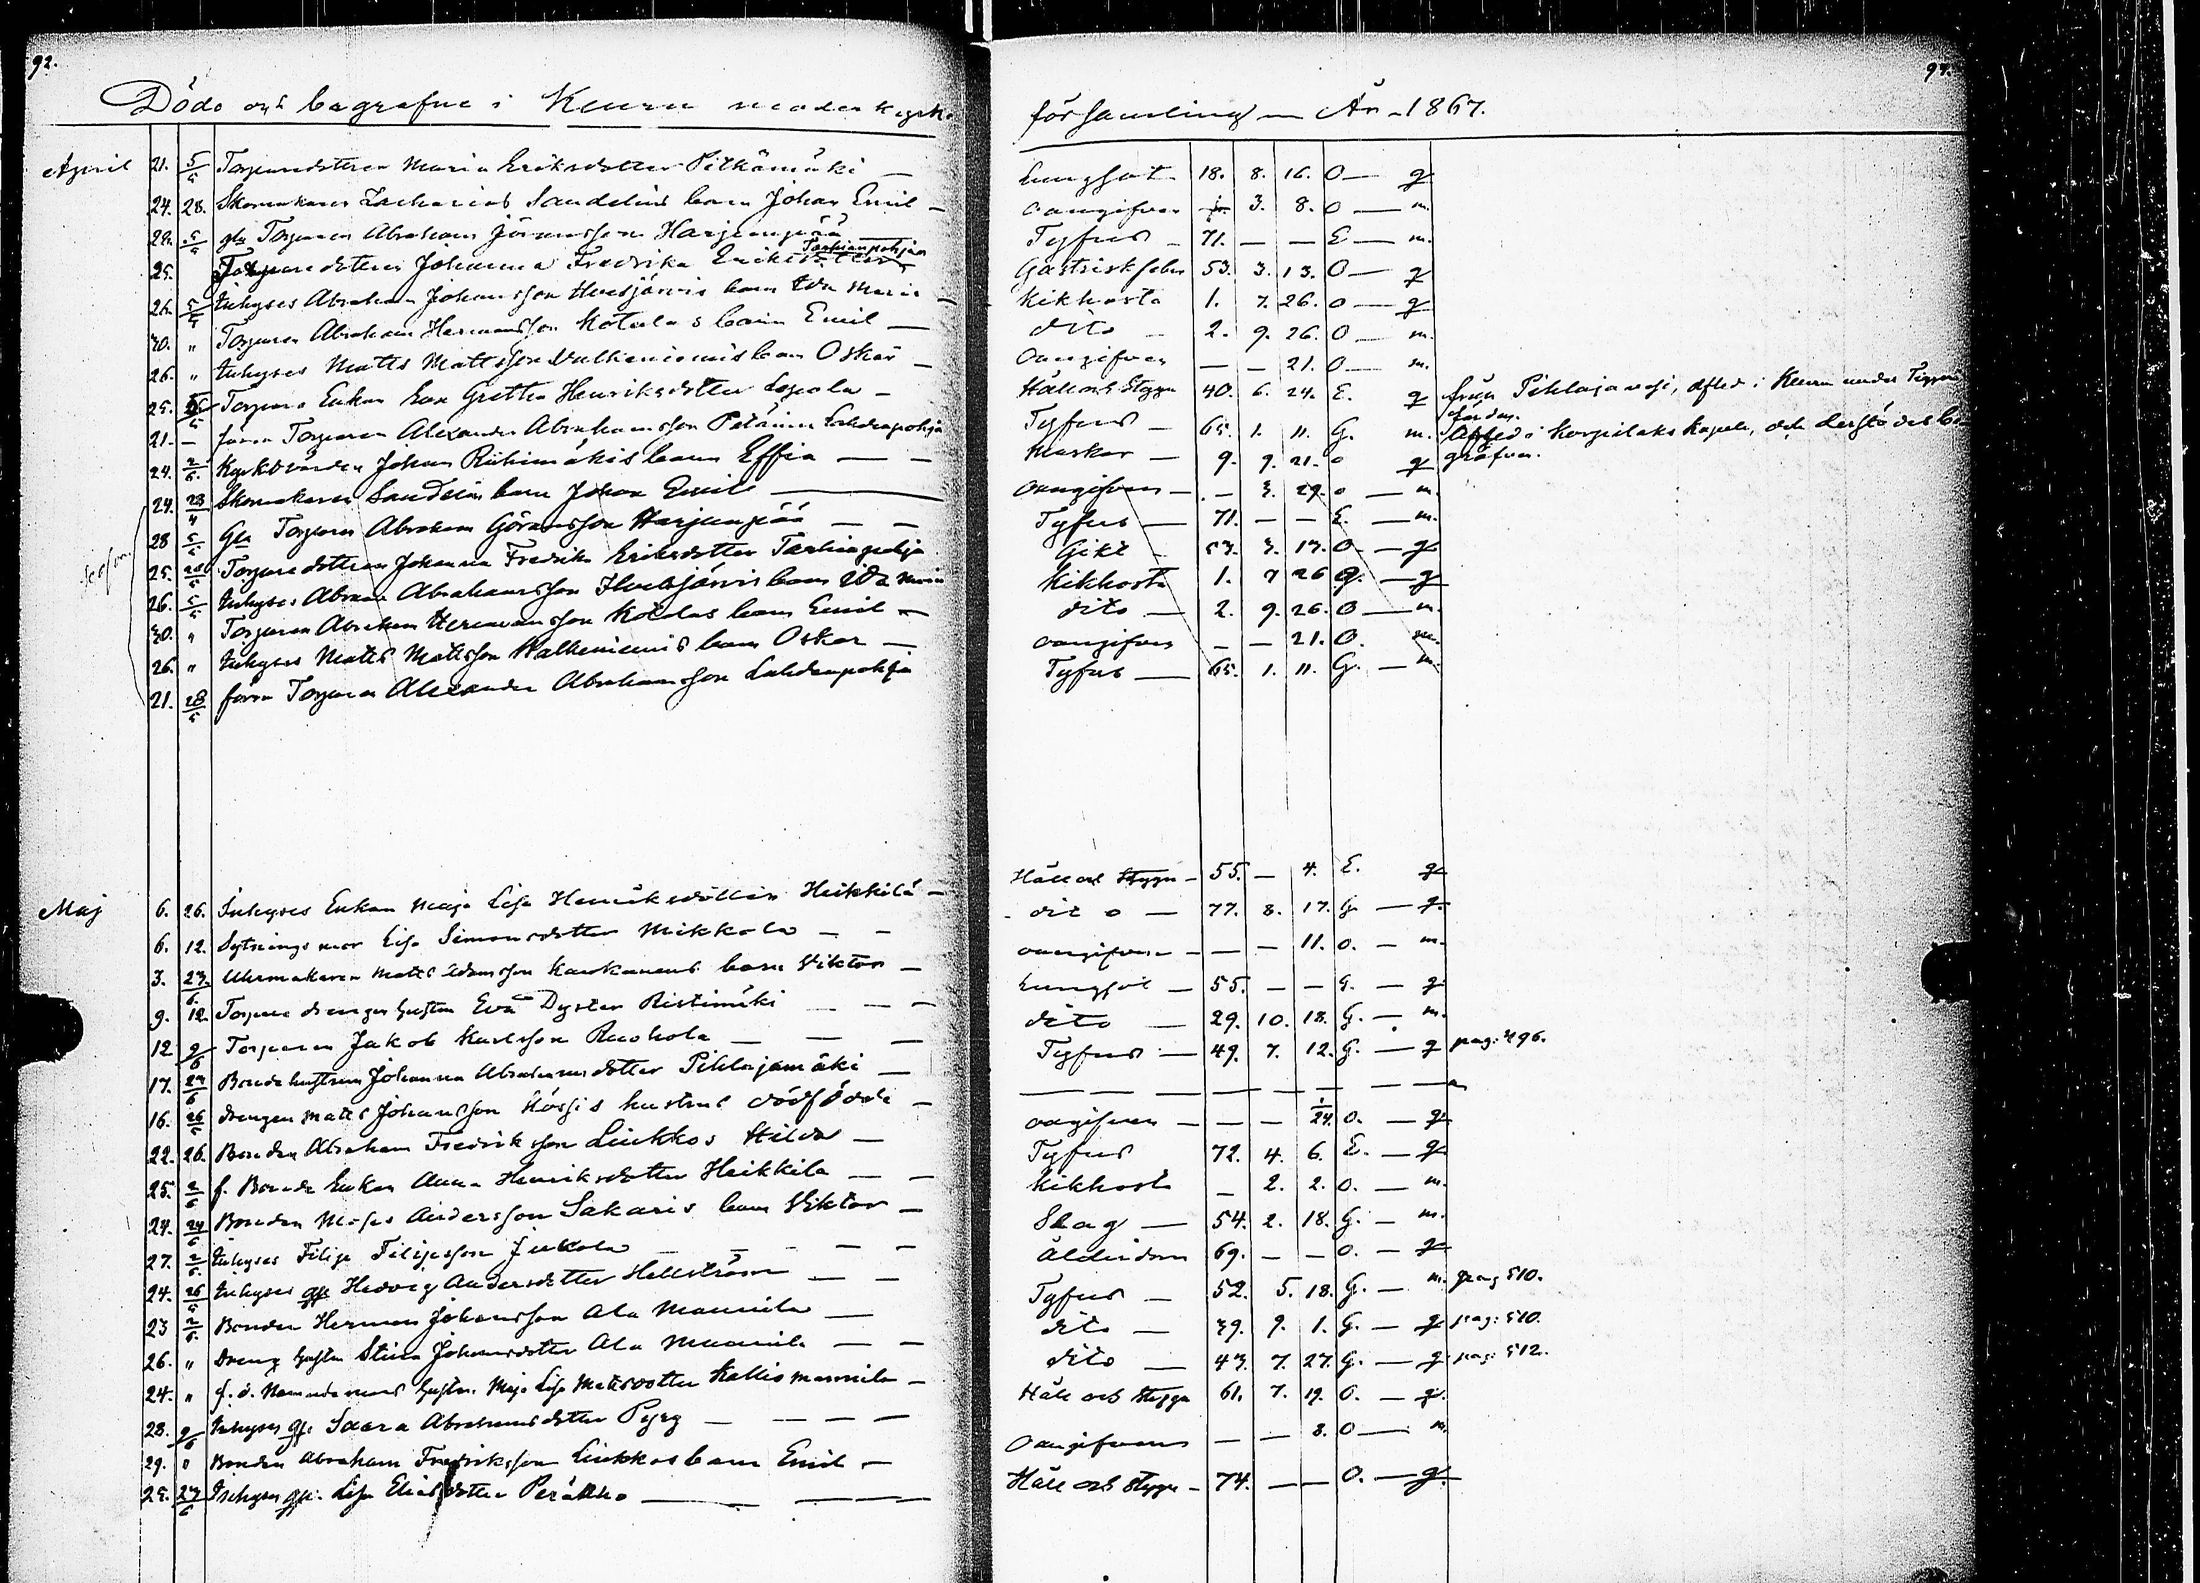 92.
Döde och begrafne i Keuru moderkyrko
April 21. 5/5 Torparedottern Maria Eriksdotter Pitkämäki —
24. 28. Skomakaren Zacharias Sandelins barn Johan Emil —
28. 5/5 gla Torparen Abraham Jöransson Harjunpää —
Tarhianpohja
25. Torparedottern Johanna Fredrika Eriksdotter
26. 5/5 Inhyses Abraham Johansson Huesjärvis barn Ida Maria —
30. " Torparen Abraham Hermansson Kotalas barn Emil —
26. " Inhyses Matts Mattsson Valkeniemis barn Oskar —
25. Torpare Enkan Eva Gretha Henriksdotter Lepola —
21. — förra Torparen Alexander Abrahamsson Lahdenpohja
24. 2/6. Kyrkovärden Johan Riihimäkis barn Effia — —
24. 28/4 Skomakaren Sandelins barn Johan Emil —
28 5/5 Gla Torparen Abraham Göransson Harjunpää — —
25. Torparedottern Johanna Fredrika Eriksdotter Tarhiapohja
26. 5/5 Inhyses Abram Abrahamsson Huesjärvis barn Ida Maria
30. " Torparen Abraham Hermansson Kotalas barn Emil —
26. " Inhyses Matts Mattsson Valkeniemis barn Oskar —
21. 28/5 förra Torparen Alexander Abrahamsson Lahdenpohja
Maj 6. 26. Inhyses Enkan Maja Lisa Henriksdotter Heikkilä —
6. 12. Sytningsmor Lisa Simonsdotter Mikkola — —
3. 23. Uhrmakaren Matts Adamsson Kaukanens barn Viktor —
9. 12. Torpare Eva Dyster Ristimäki — —
12 9/6 Torparen Jakob Karlsson Ruohola — — —
17. 24/6 Bonde hustrun Johanna Abrahamsdotter Pihlajamäki —
16. 26/5 Drengen Matts Johansson hustrus dödfödde —
22. 26. Bonden Abraham Fredriksson Liukkos Hilda —
25. 2/6 f. Bonde Enkan Anna Henriksdotter Heikkilä — —
24. 24/6 Bonden Moses Andersson Sakaris barn Viktor —
27. 2/6. Inhyses Filip Filipsson Jukola — — —
24. 26/5 Inhyses Hedvig Andersdotter Hellström — —
23 2/6. Bonden Herman Johansson Ala Mannila —
26. " Dreng hustru Stina Johansdotter Ala Mannila — —
24. " hustru. Maja Lisa Matsdotter Kalliomannila —
28. 9/6 Inhyses Saara Abrahamsdotter — — —
29. " Bonden Abraham Fredriksson Liukkos barn Emil —
25. 27/6 Inhyses Lisa Eliasdotter — —
församling — År — 1867.
Lungsot. 18. 8. 16. O — q
Oangifven 3. 8. O — m.
Tyfus — 71. — — E — m.
Gastrisk feber 53. 3. 13. O — q
Kikhosta 1. 7. 26. O — q
dito — 2. 9. 26. O — m.
Oangifven — — 21. O — m.
Håll och Stygn 40. 6. 24. E. q från Pihlajavesi, afled i Keuru under
Tyfus — 65. 1. 11. G. m. Afled i Korpilaks kapell, och derstädes be-
Maskar — 9. 9. 21. O q grafven.
Oangifven — — 3. 29. O — m.
Tyfus — 71. — — E. — m.
Gikt — 53. 3. 13. O — q
Kikhosta 1. 7 26 q. — q
dito — 2. 9. 26. O — m.
oangifven — — 21. O. m.
Tyfus — 65. 1. 11. G. — m
Håll och Stygn — 55. — 4. E. q
dito — 77. 8. 17. G — q.
oangifven — — — 11. O. — m.
Lungsot — 55. — — G. — q
dito — 29. 10. 18. G. — m.
Tyfus — 49. 7. 12. G. — q pag. 496.
— — — — — — —
oangifven — — — 1/24. O. — q.
Tyfus 72. 4. 6. E. — q
Kikhosta — 2. 2. O. — m.
Slag — 54. 2. 18. G. — m.
Ålderdom 69. — — O. — q
Tyfus — 52. 5. 18. G. — m. pag 510.
dito — 39. 9. 1. G. — q pag. 510.
dito — 43. 7. 27. G. — q. pag. 512.
Håll och Stygn 61. 7. 19. O. — q.
Oangifven — — 8. O — m
Håll och Stygn — 74. — — O. — q.